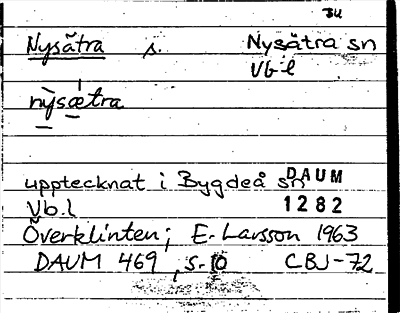 BU
Nysätra s. Nysätra sn
Vb.l
nysætra
upptecknat i Bygdeå sn DAUM
Vb.l 1282
Överklinten; E. Larsson 1963
DAUM 469, s. 10 CBJ-72